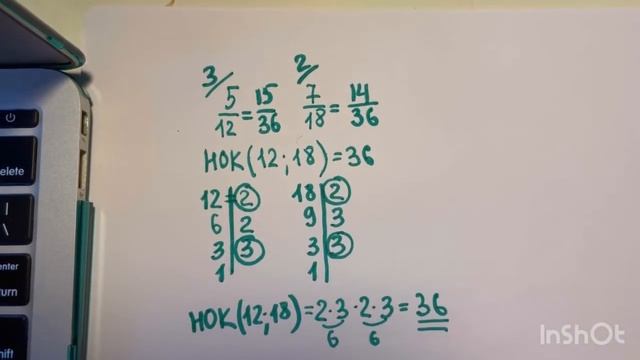 3/ 2/
5/12 = 15/36 7/18 = 14/36
НОК(12;18)=36
12 2 18 2
6 2 9 3
3 3 3 3
1 1
НОК(12;18)=2·3·2·3=36
6 6
delete
|
\
enter
return
shift
InShOt